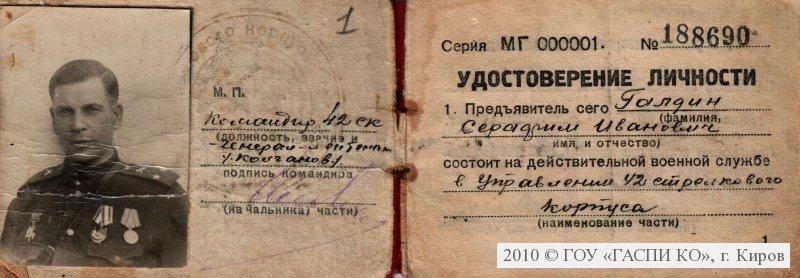 1
М. П.
Командир 42 ск
(должность, звание и
Генерал-лейтенант
/Колганов/
подпись командира
(начальника) части)
Серия МГ 000001. № 188690
УДОСТОВЕРЕНИЕ ЛИЧНОСТИ
1. Предъявитель сего Галдин
(фамилия,
Серафим Иванович
имя, и отчество)
состоит на действительной военной службе
в Управлении 42 стрелкового
корпуса
(наименование части)
1
2010 © ГОУ «ГАСПИ КО», г. Киров